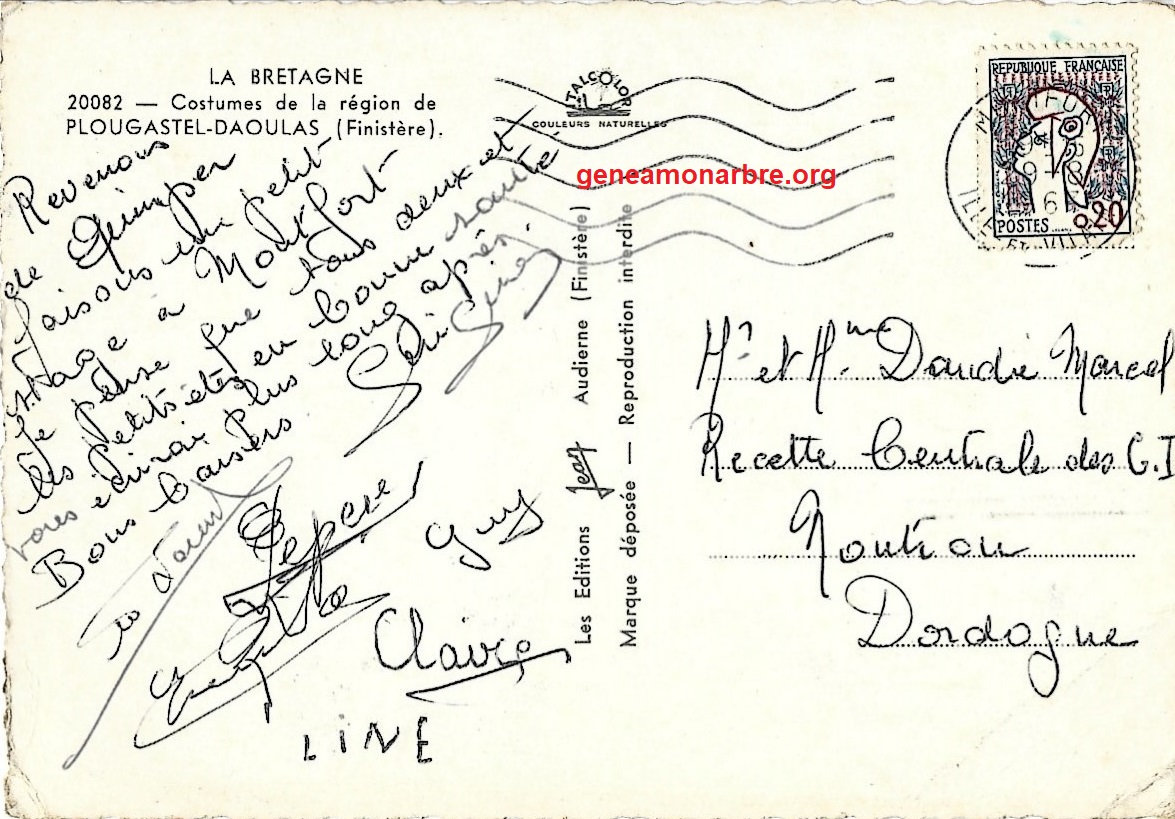 LA BRETAGNE
20082 — Costumes de la région de
PLOUGASTEL-DAOULAS (Finistère).
Revenons
de Quimper
faisons un petit
stage à Montfort
Je pense que tous deux et
les petits êtes en bonne santé
vous écrirai plus long après.
Bons baisers
Guy
Claire
LINE
Les Editions Jean Audierne (Finistère)
Marque déposée — Reproduction interdite
ITALCOLOR
COULEURS NATURELLES
geneamonarbre.org
REPUBLIQUE FRANÇAISE
POSTES
0.20
ILLE ET VILAINE
Mr et Mme Daudié Marcel
Recette Centrale des C.I
Nontron
Dordogne